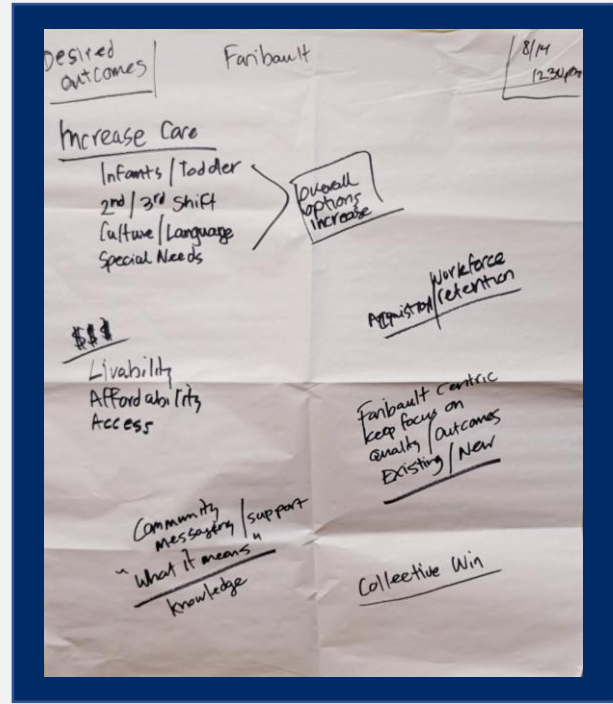 Desired
outcomes
Faribault
8/14
12:30pm
Increase Care
Infants/Toddler
2nd/3rd Shift
Culture/Language
Special Needs
overall
options
increase
Workforce
Acquistion/retention
$$$
Livability
Affordability
Access
Faribault Centric
keep focus on
quality/Outcomes
Existing/New
Community
messaging/support
"What it means"
knowledge
Collective Win